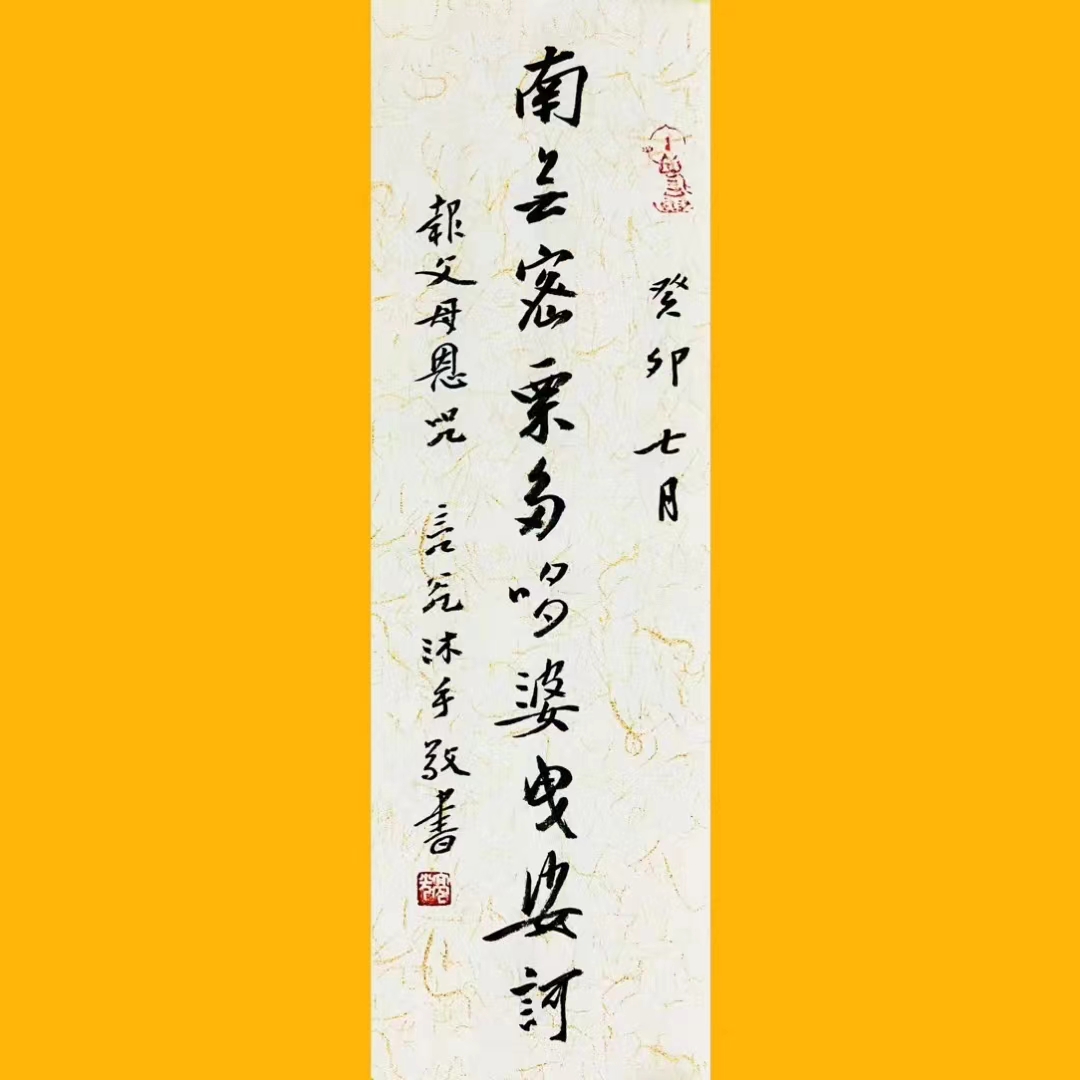 癸卯七月
南無密栗多哆婆曳娑訶
報父母恩咒 言沐手敬書